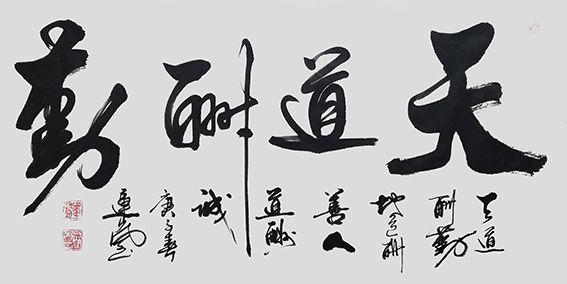 天道酬勤
天道
酬勤
地道酬
善人
道酬
诚
庚子春